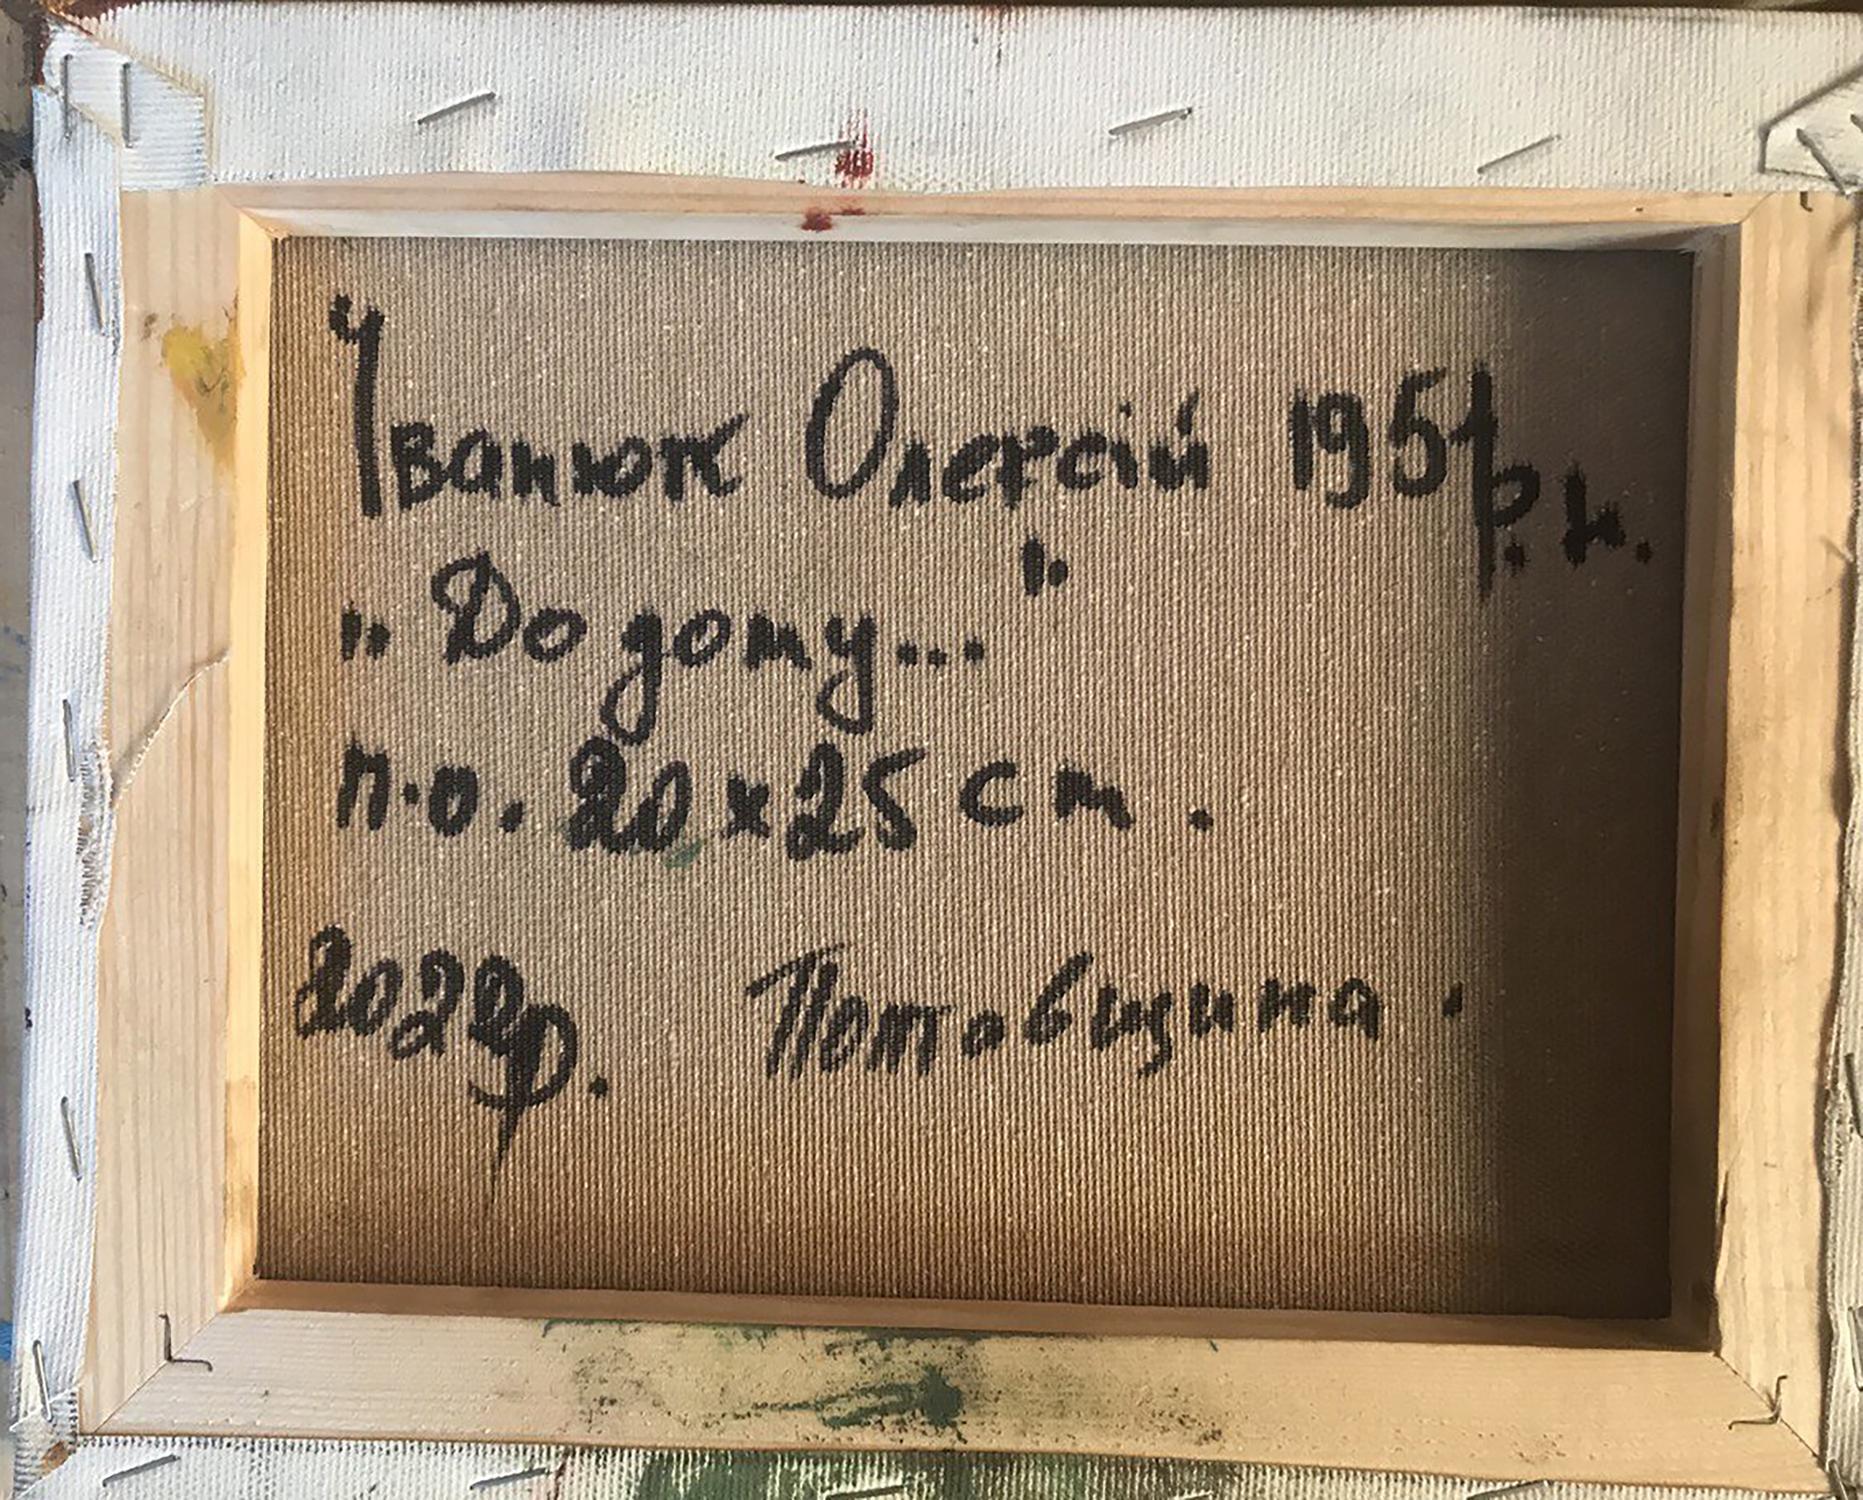 Іванюк Олексій 1951р.н.
„До дому..."
п.о. 20х25 см.
2022р. Потовщина.